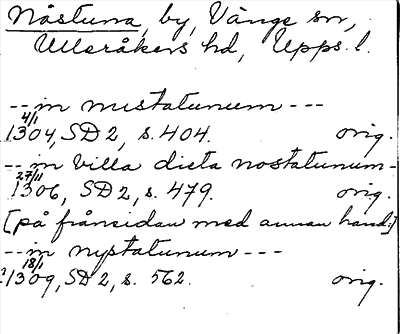 Nåstuna, by, Vänge sn,
Ulleråkers hd, Upps. l.
--- in nustatunum ---
4/1
1304, SD 2, s. 404. orig.
-- in villa dicta nostatunum -
27/11
1306, SD 2, s. 479. orig.
[på frånsidan med annan hand:]
--- in nystatunum ---
18/1
1309, SD 2, s. 562. orig.